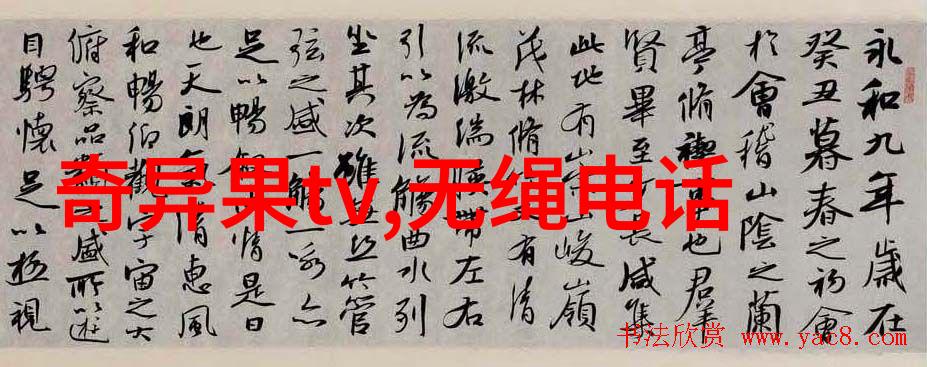 永和九年歲在
癸丑暮春之初會
於會稽山陰之蘭
亭脩禊事也群
賢畢至長咸集
此地有山峻嶺
茂林脩有清
流激湍暎帶左右
引以為流觴曲水列
坐其次雖無絲竹管
弦之盛一觴一詠亦
足以暢情是日
也天朗氣清惠風
和暢仰觀宇宙之大
俯察品盛所以遊
目騁懷足以極視
奇异果tv,无绳电话
书法欣赏 www.yac8.com